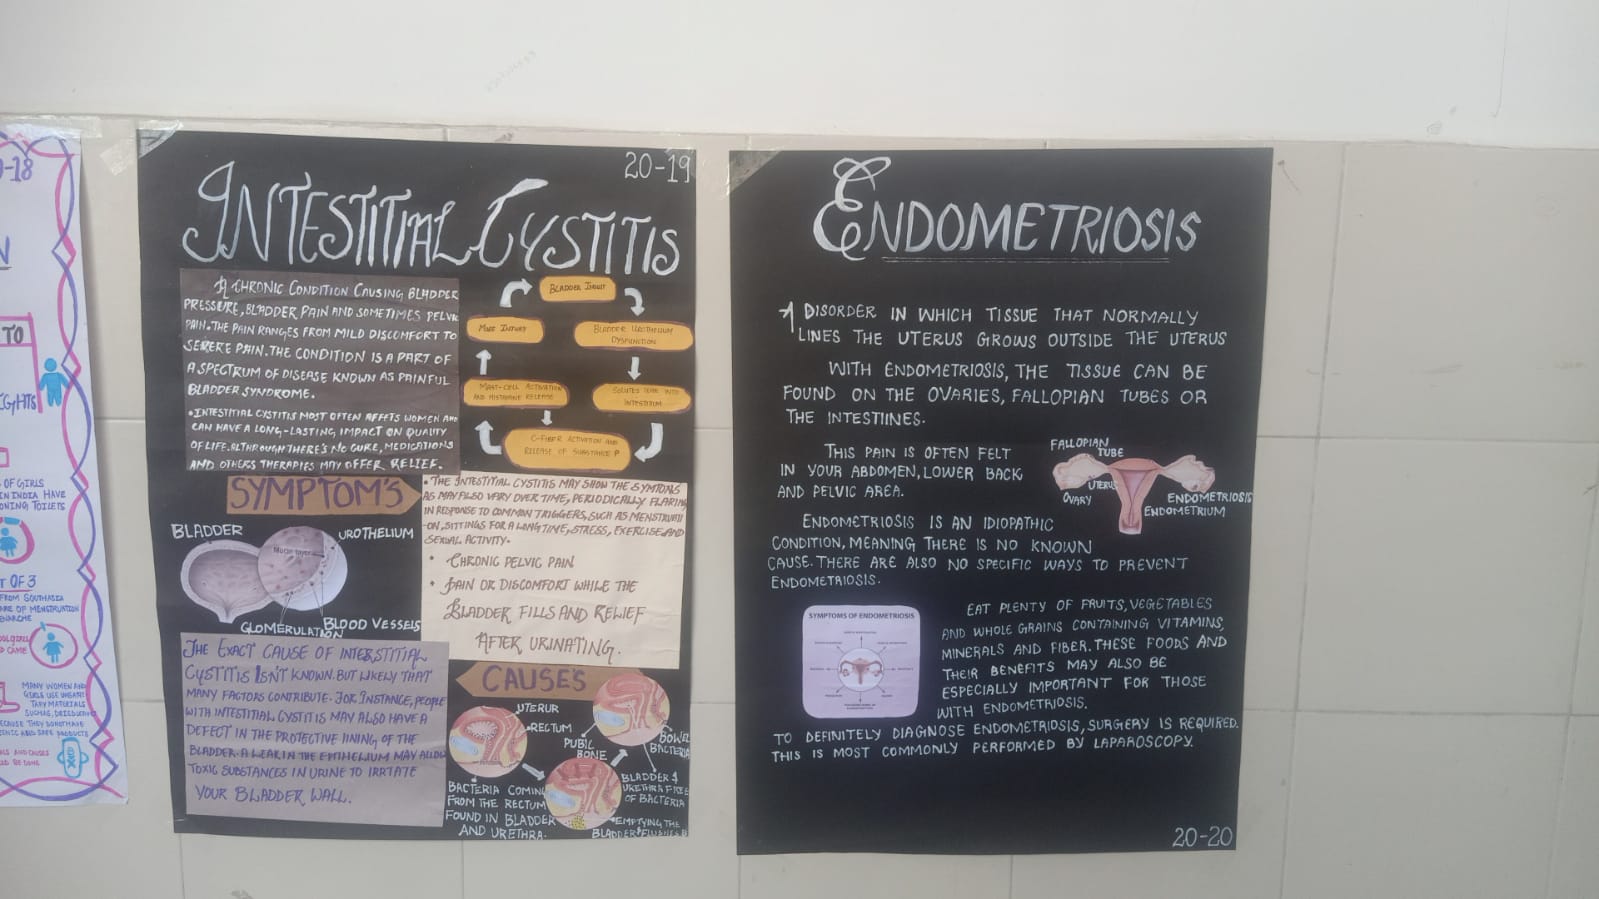 -18
N
TO
IGHTS
S OF GIRLS
IN INDIA HAVE
ONING TOILETS
T OF 3
FROM SOUTHASIA
ARE OF MENSTRUATION
ENARCHE
CAME
MANY WOMEN AND
GIRLS USE UNSANI-
TARY MATERIALS
20-19
INTESTITIAL CYSTITIS
A CHRONIC CONDITION CAUSING BLADDER
PRESSURE, BLADDER PAIN AND SOMETIMES PELVIC
PAIN. THE PAIN RANGES FROM MILD DISCOMFORT TO
SEVERE PAIN. THE CONDITION IS A PART OF
A SPECTRUM OF DISEASE KNOWN AS PAINFUL
BLADDER SYNDROME.
• INTESTITIAL CYSTITIS MOST OFTEN AFFETS WOMEN AND
CAN HAVE A LONG-LASTING IMPACT ON QUALITY
OF LIFE. ALTHROUGH THERE'S NO CURE, MEDICATIONS
AND OTHERS THERAPIES MAY OFFER RELIEF.
BLADDER INSULT
MORE INJURY
BLADDER UROTHELIUM
DYSFUNCTION
MAST-CELL ACTIVATION
AND HISTAMINE RELEASE
C-FIBER ACTIVATION AND
RELEASE OF SUBSTANCE P
SYMPTOM'S
• THE INTESTITIAL CYSTITIS MAY SHOW THE SYMTOMS
AS MAY ALSO VARY OVER TIME, PERIODICALLY FLARING
IN RESPONSE TO COMMON TRIGGERS, SUCH AS MENSTRUATI
-ON, SITTINGS FOR A LONG TIME, STRESS, EXERCISE AND
SEXUAL ACTIVITY.
• CHRONIC PELVIC PAIN
• PAIN OR DISCOMFORT WHILE THE
BLADDER FILLS AND RELIEF
AFTER URINATING.
BLADDER
UROTHELIUM
Mucin layer
GLOMERULATION
BLOOD VESSELS
THE EXACT CAUSE OF INTERSTITIAL
CYSTITIS ISN'T KNOWN. BUT LIKELY THAT
MANY FACTORS CONTRIBUTE. FOR INSTANCE, PEOPLE
WITH INTESTITIAL CYSTITIS MAY ALSO HAVE A
DEFECT IN THE PROTECTIVE LINING OF THE
BLADDER. A LEAK IN THE EPITHELIUM MAY ALLOW
TOXIC SUBSTANCES IN URINE TO IRRITATE
YOUR BLADDER WALL.
CAUSES
UTERUR
RECTUM
PUBIC
BONE
BOWEL
BACTERIA
BACTERIA COMING
FROM THE RECTUM
FOUND IN BLADDER
AND URETHRA.
BLADDER &
URETHRA FREE
OF BACTERIA
• EMPTYING THE
BLADDER FLUSHES
ENDOMETRIOSIS
A DISORDER IN WHICH TISSUE THAT NORMALLY
LINES THE UTERUS GROWS OUTSIDE THE UTERUS
WITH ENDOMETRIOSIS, THE TISSUE CAN BE
FOUND ON THE OVARIES, FALLOPIAN TUBES OR
THE INTESTIINES.
THIS PAIN IS OFTEN FELT
IN YOUR ABDOMEN, LOWER BACK
AND PELVIC AREA.
FALLOPIAN
TUBE
UTERUS
OVARY
ENDOMETRIOSIS
ENDOMETRIUM
ENDOMETRIOSIS IS AN IDIOPATHIC
CONDITION, MEANING THERE IS NO KNOWN
CAUSE. THERE ARE ALSO NO SPECIFIC WAYS TO PREVENT
ENDOMETRIOSIS.
SYMPTOMS OF ENDOMETRIOSIS
EAT PLENTY OF FRUITS, VEGETABLES
AND WHOLE GRAINS CONTAINING VITAMINS,
MINERALS AND FIBER. THESE FOODS AND
THEIR BENEFITS MAY ALSO BE
ESPECIALLY IMPORTANT FOR THOSE
WITH ENDOMETRIOSIS.
TO DEFINITELY DIAGNOSE ENDOMETRIOSIS, SURGERY IS REQUIRED.
THIS IS MOST COMMONLY PERFORMED BY LAPAROSCOPY.
20-20